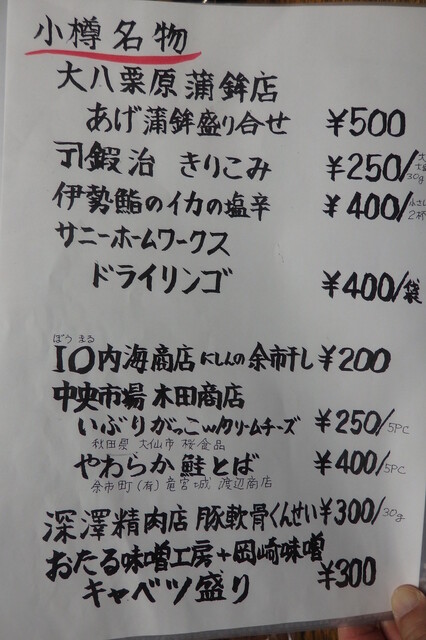 小樽名物
大八栗原蒲鉾店
あげ蒲鉾盛り合せ ¥500
鍛治 きりこみ ¥250/ 30g
伊勢鮨のイカの塩辛 ¥400/ 2杯
サニーホームワークス
ドライリンゴ ¥400/袋
ぼう まる
IO内海商店 にしんの余市干し ¥200
中央市場 木田商店
いぶりがっこwクリームチーズ ¥250/5PC
秋田県 大仙市 桜食品
やわらか鮭とば ¥400/5PC
余市町(有)竜宮城 渡辺商店
深澤精肉店 豚軟骨くんせい ¥300/30g
おたる味噌工房+岡崎味噌
キャベツ盛り ¥300